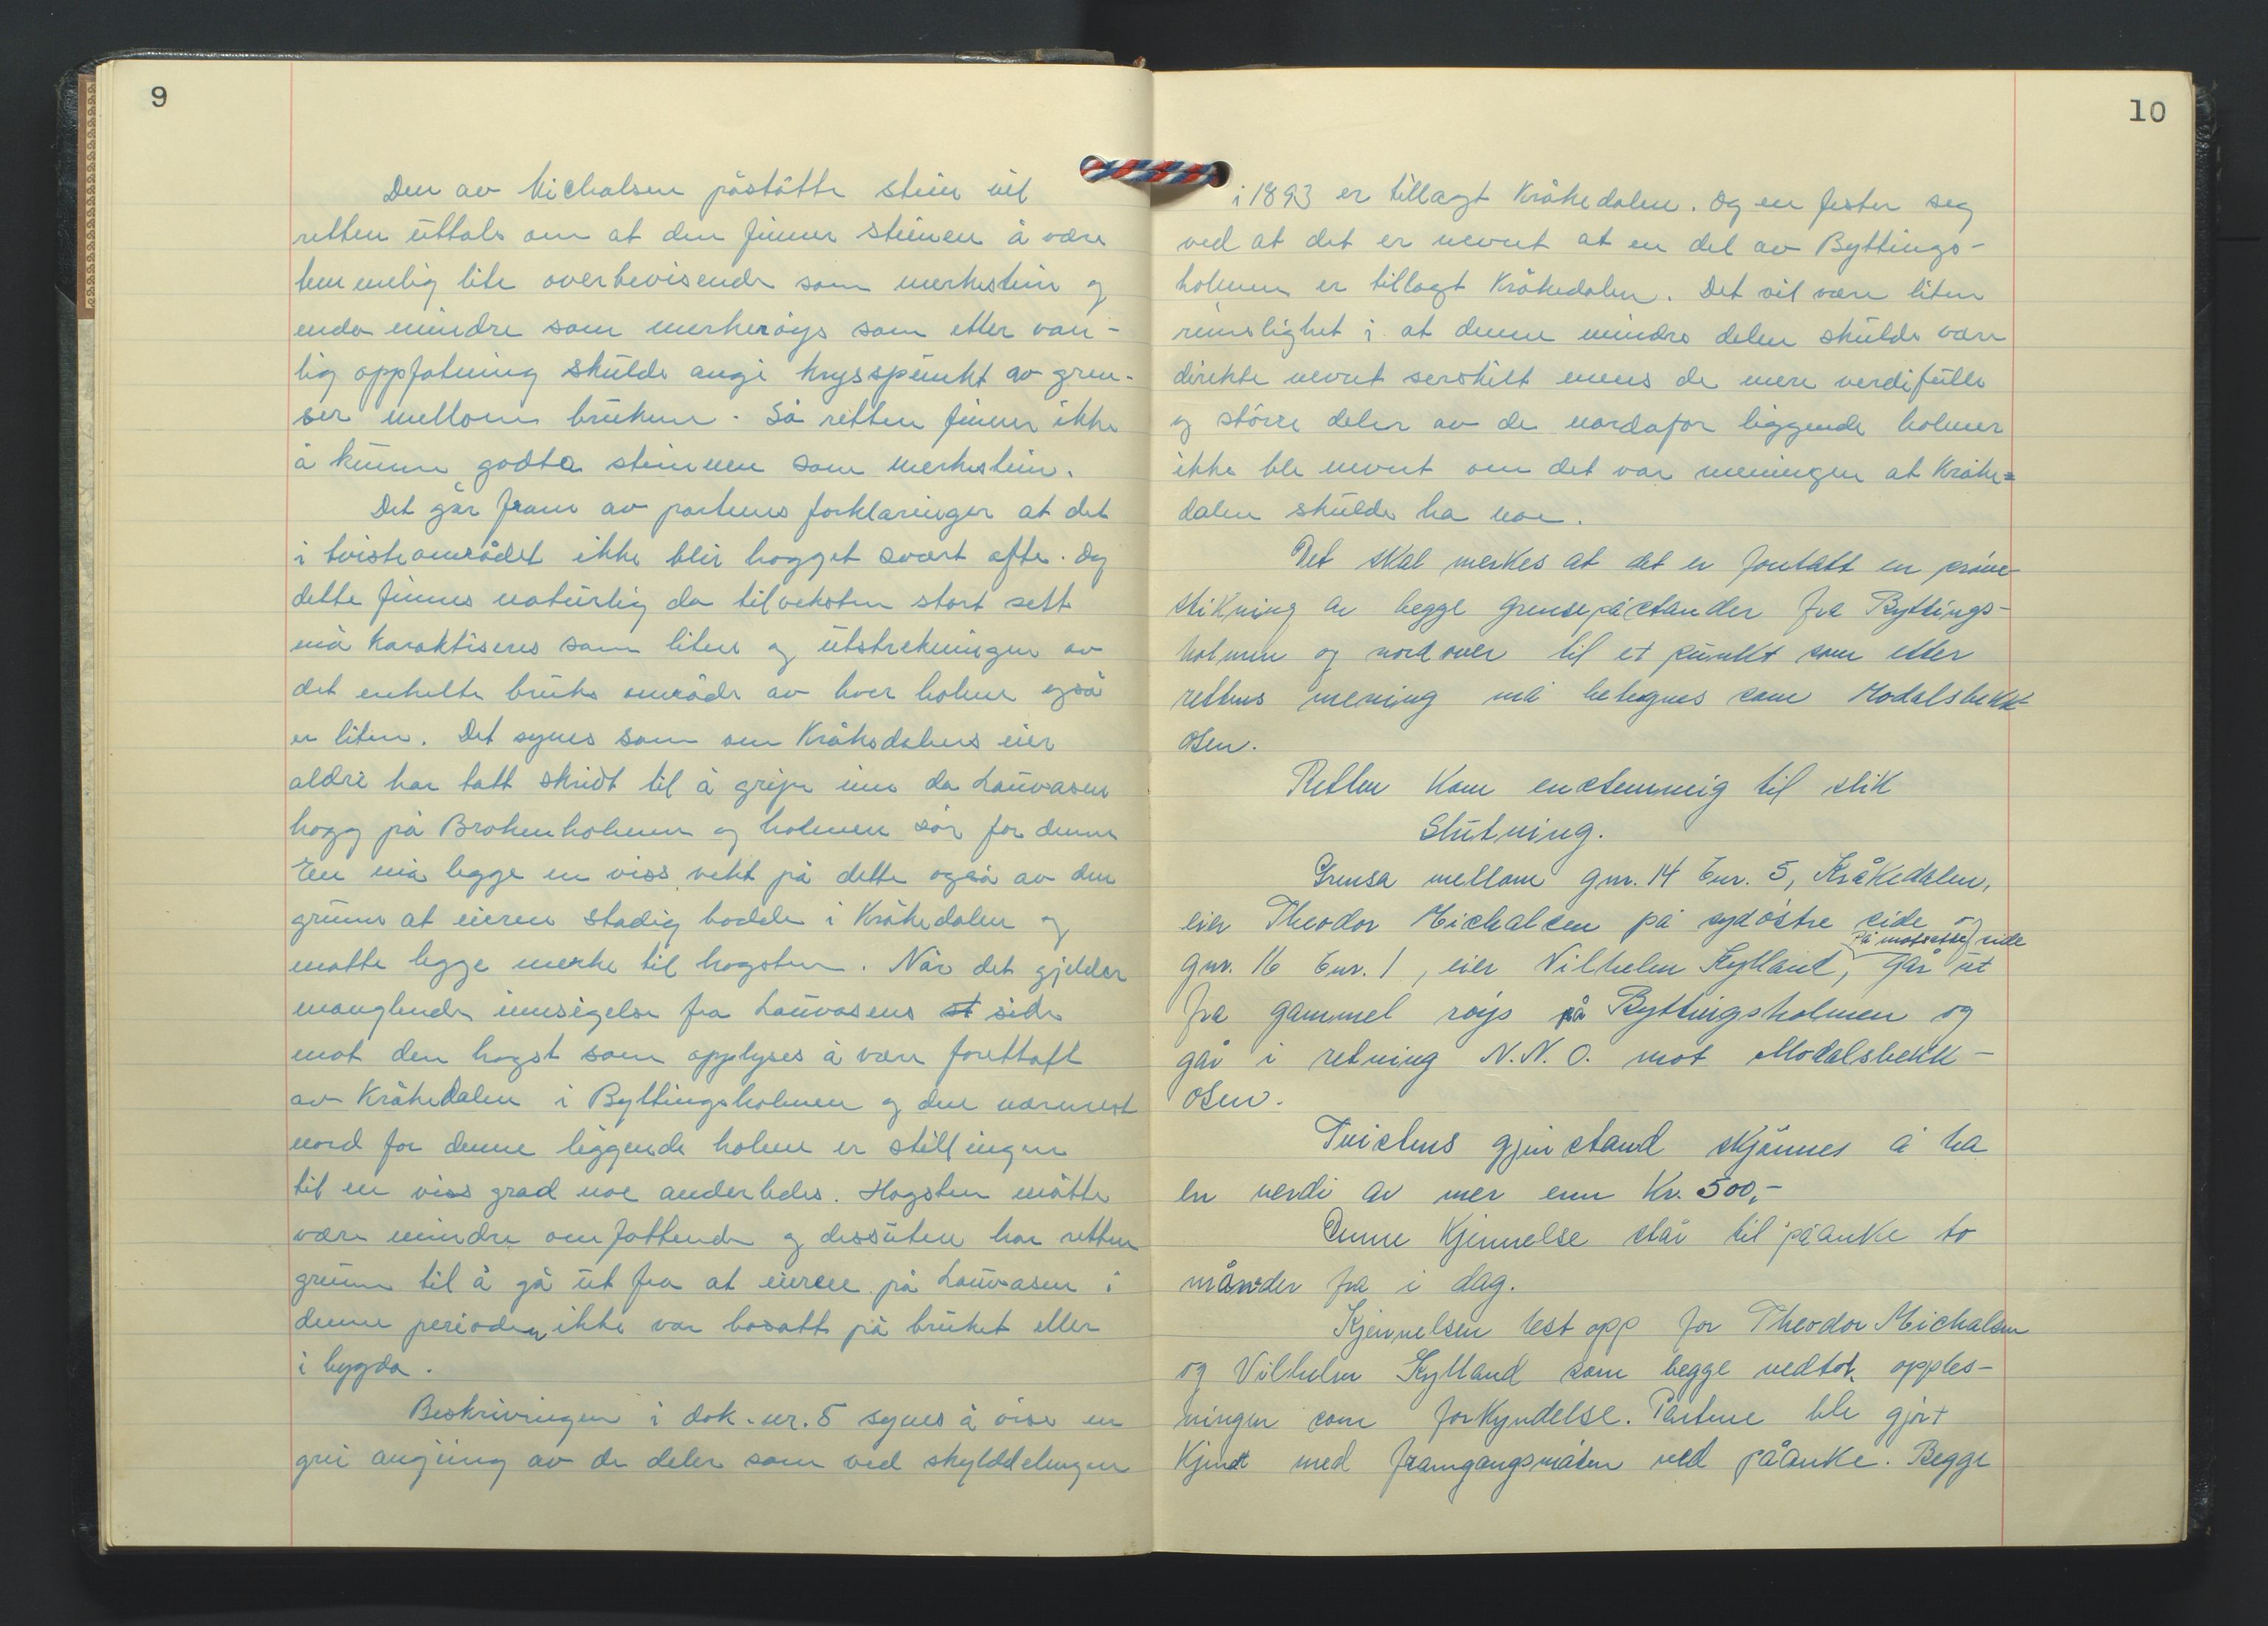 9
Den av Michalsen påståtte stein vil
retten uttale om at den finner steinen å være
temmelig lite overbevisende som merkestein og
enda mindre som merkerøys som etter van-
lig oppfatning skulde angi krysspunkt av gren-
ser mellom brukene. Så retten finner ikke
å kunne godta steinen som merkestein.
Det går fram av partenes forklaringer at det
i tvisteområdet ikke blir hogget svært ofte. Og
dette finnes naturlig da tilveksten stort sett
må karaktiseres som liten og utstrekningen av
det enkelte bruks område av hver holme også
er liten. Det synes som om Kråkedalens eier
aldri har tatt skridt til å gripe inn da Lauvåsen
hogg på Brokenholmen og holmen sør for denne
En må legge en viss vekt på dette også av den
grunn at eieren stadig bodde i Kråkedalen og
måtte legge merke til hogsten. Når det gjelder
manglende innsigelse fra Lauvåsens st side
mot den hogst som opplyses å være foretatt
av Kråkedalen i Byttingsholmen og den nærmest
nord for denne liggende holme er stillingen
til en viss grad noe anderledes. Hogsten måtte
være mindre omfattende og dessuten har retten
grunn til å gå ut fra at eieren på Lauvåsen i
denne perioden ikke var bosatt på bruket eller
i bygda.
Beskrivingen i dok. nr. 5 synes å vise en
grei angiing av de deler som ved skylddelingen
10
i 1893 er tillagt Kråkedalen. Og en fester seg
ved at det er nevnt at en del av Byttings-
holmen er tillagt Kråkedalen. Det vil være liten
rimelighet i at denne mindre delen skulde være
direkte nevnt serskilt mens de mere verdifulle
og større deler av de nordafor liggende holmer
ikke ble nevnt om det var meningen at Kråke=
dalen skulde ha noe.
Det skal merkes at det er foretatt en prøve-
stikning av begge grensepåstander fra Byttings-
holmen og nordover til et punkt som etter
rettens mening må betegnes som Modalsbekk-
osen.
Retten kom enstemmig til slik
Slutning.
Grensa mellom gnr. 14 bnr. 5, Kråkedalen,
eier Theodor Michalsen på sydøstre side og
på motsatte side
gnr. 16 bnr. 1, eier Vilhelm Kylland, går ut
fra gammel røys på Byttingsholmen og
går i retning N.N.O. mot Modalsbekk-
osen.
Tvistens gjenstand skjønnes å ha
en verdi av mer enn Kr. 500,-
Denne kjennelse står til påanke to
måneder fra i dag.
Kjennelsen lest opp for Theodor Michalsen
og Vilhelm Kylland som begge vedtok opples-
ningen som forkyndelse. Partene ble gjort
kjent med framgangsmåten ved påanke. Begge